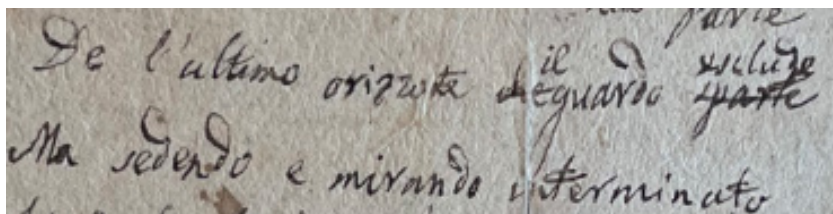 parte
De l'ultimo orizzote il guardo esclude
Ma sedendo e mirando interminato